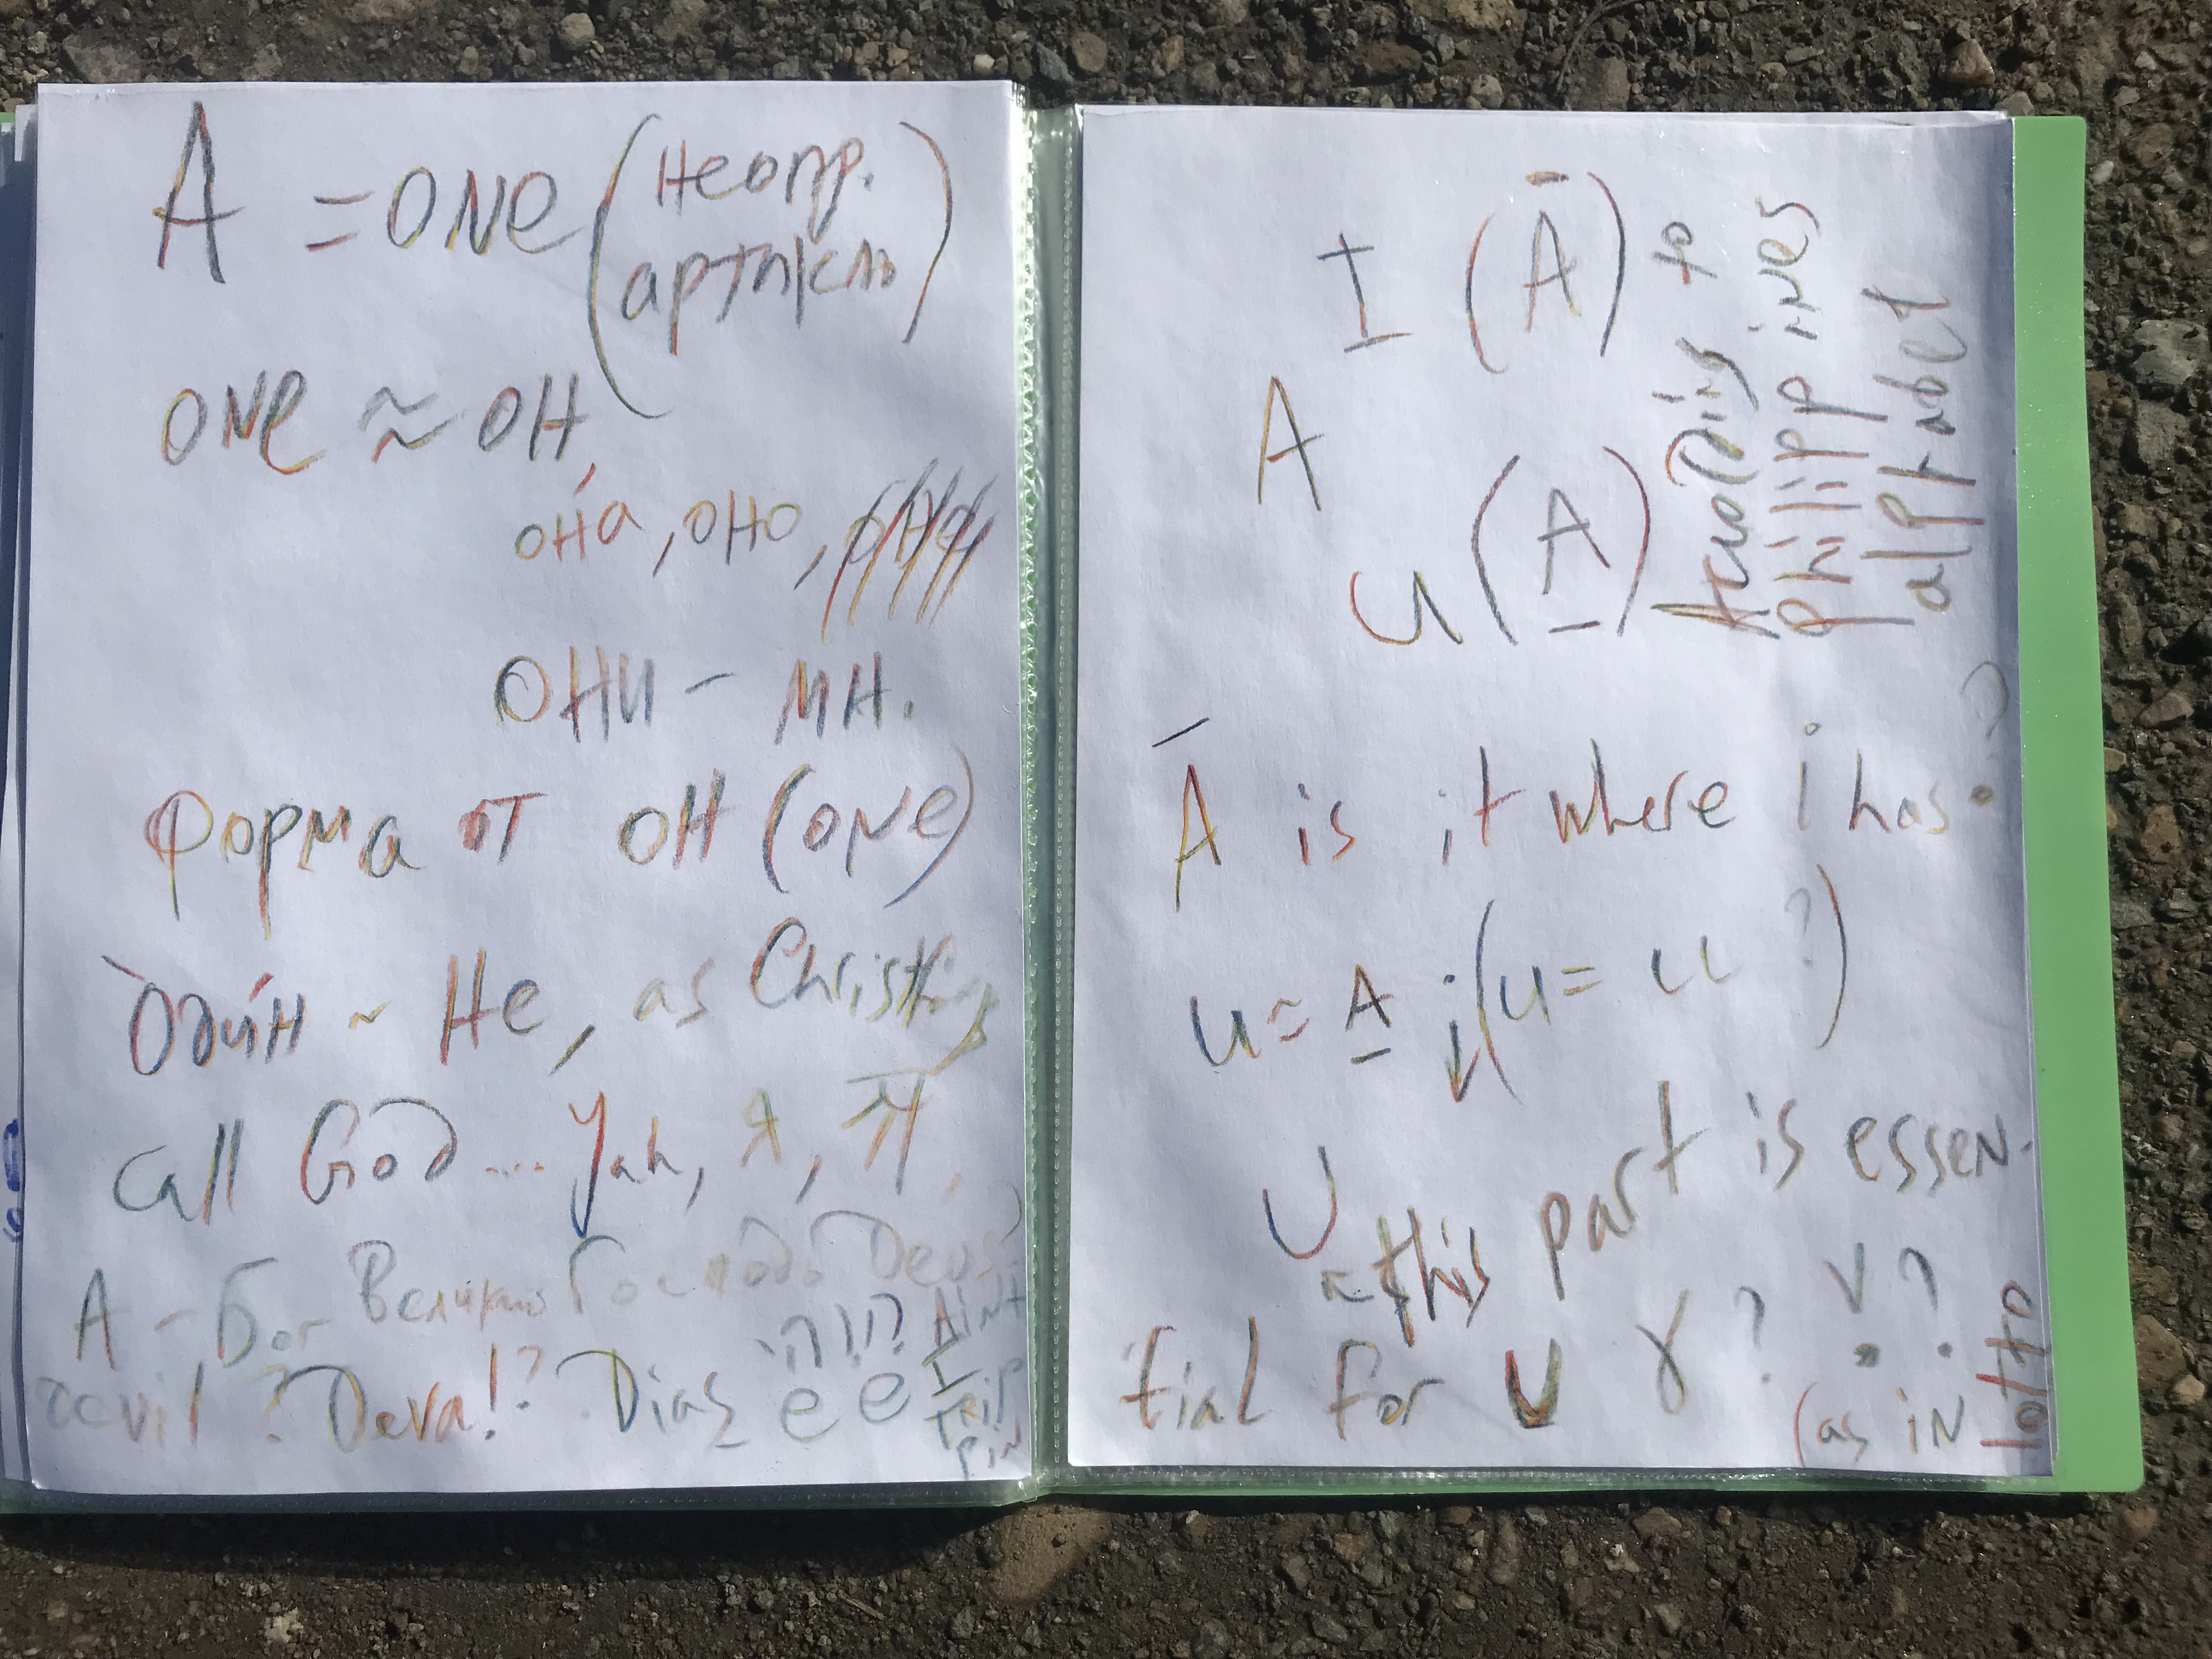 A = ONE (неопр.
артикль)
ONE ≈ ОН,
она́, оно,
ОНИ – МН.
Форма от ОН (ONE)
Оди́н ~ He, as Christians
call God.... Yah, Я,
А – Бог Велико Господь Deus?
devil? Deva!? Dias ee
Ain't
I
trip
pin
I (Ā)
A
U (A̲)
According to
philippines
alphabet
Ā is it where i has?
U = A̲ ; (U = U ?)
U ~ this part is essen-
tial for U γ? V ?
(as in lotto